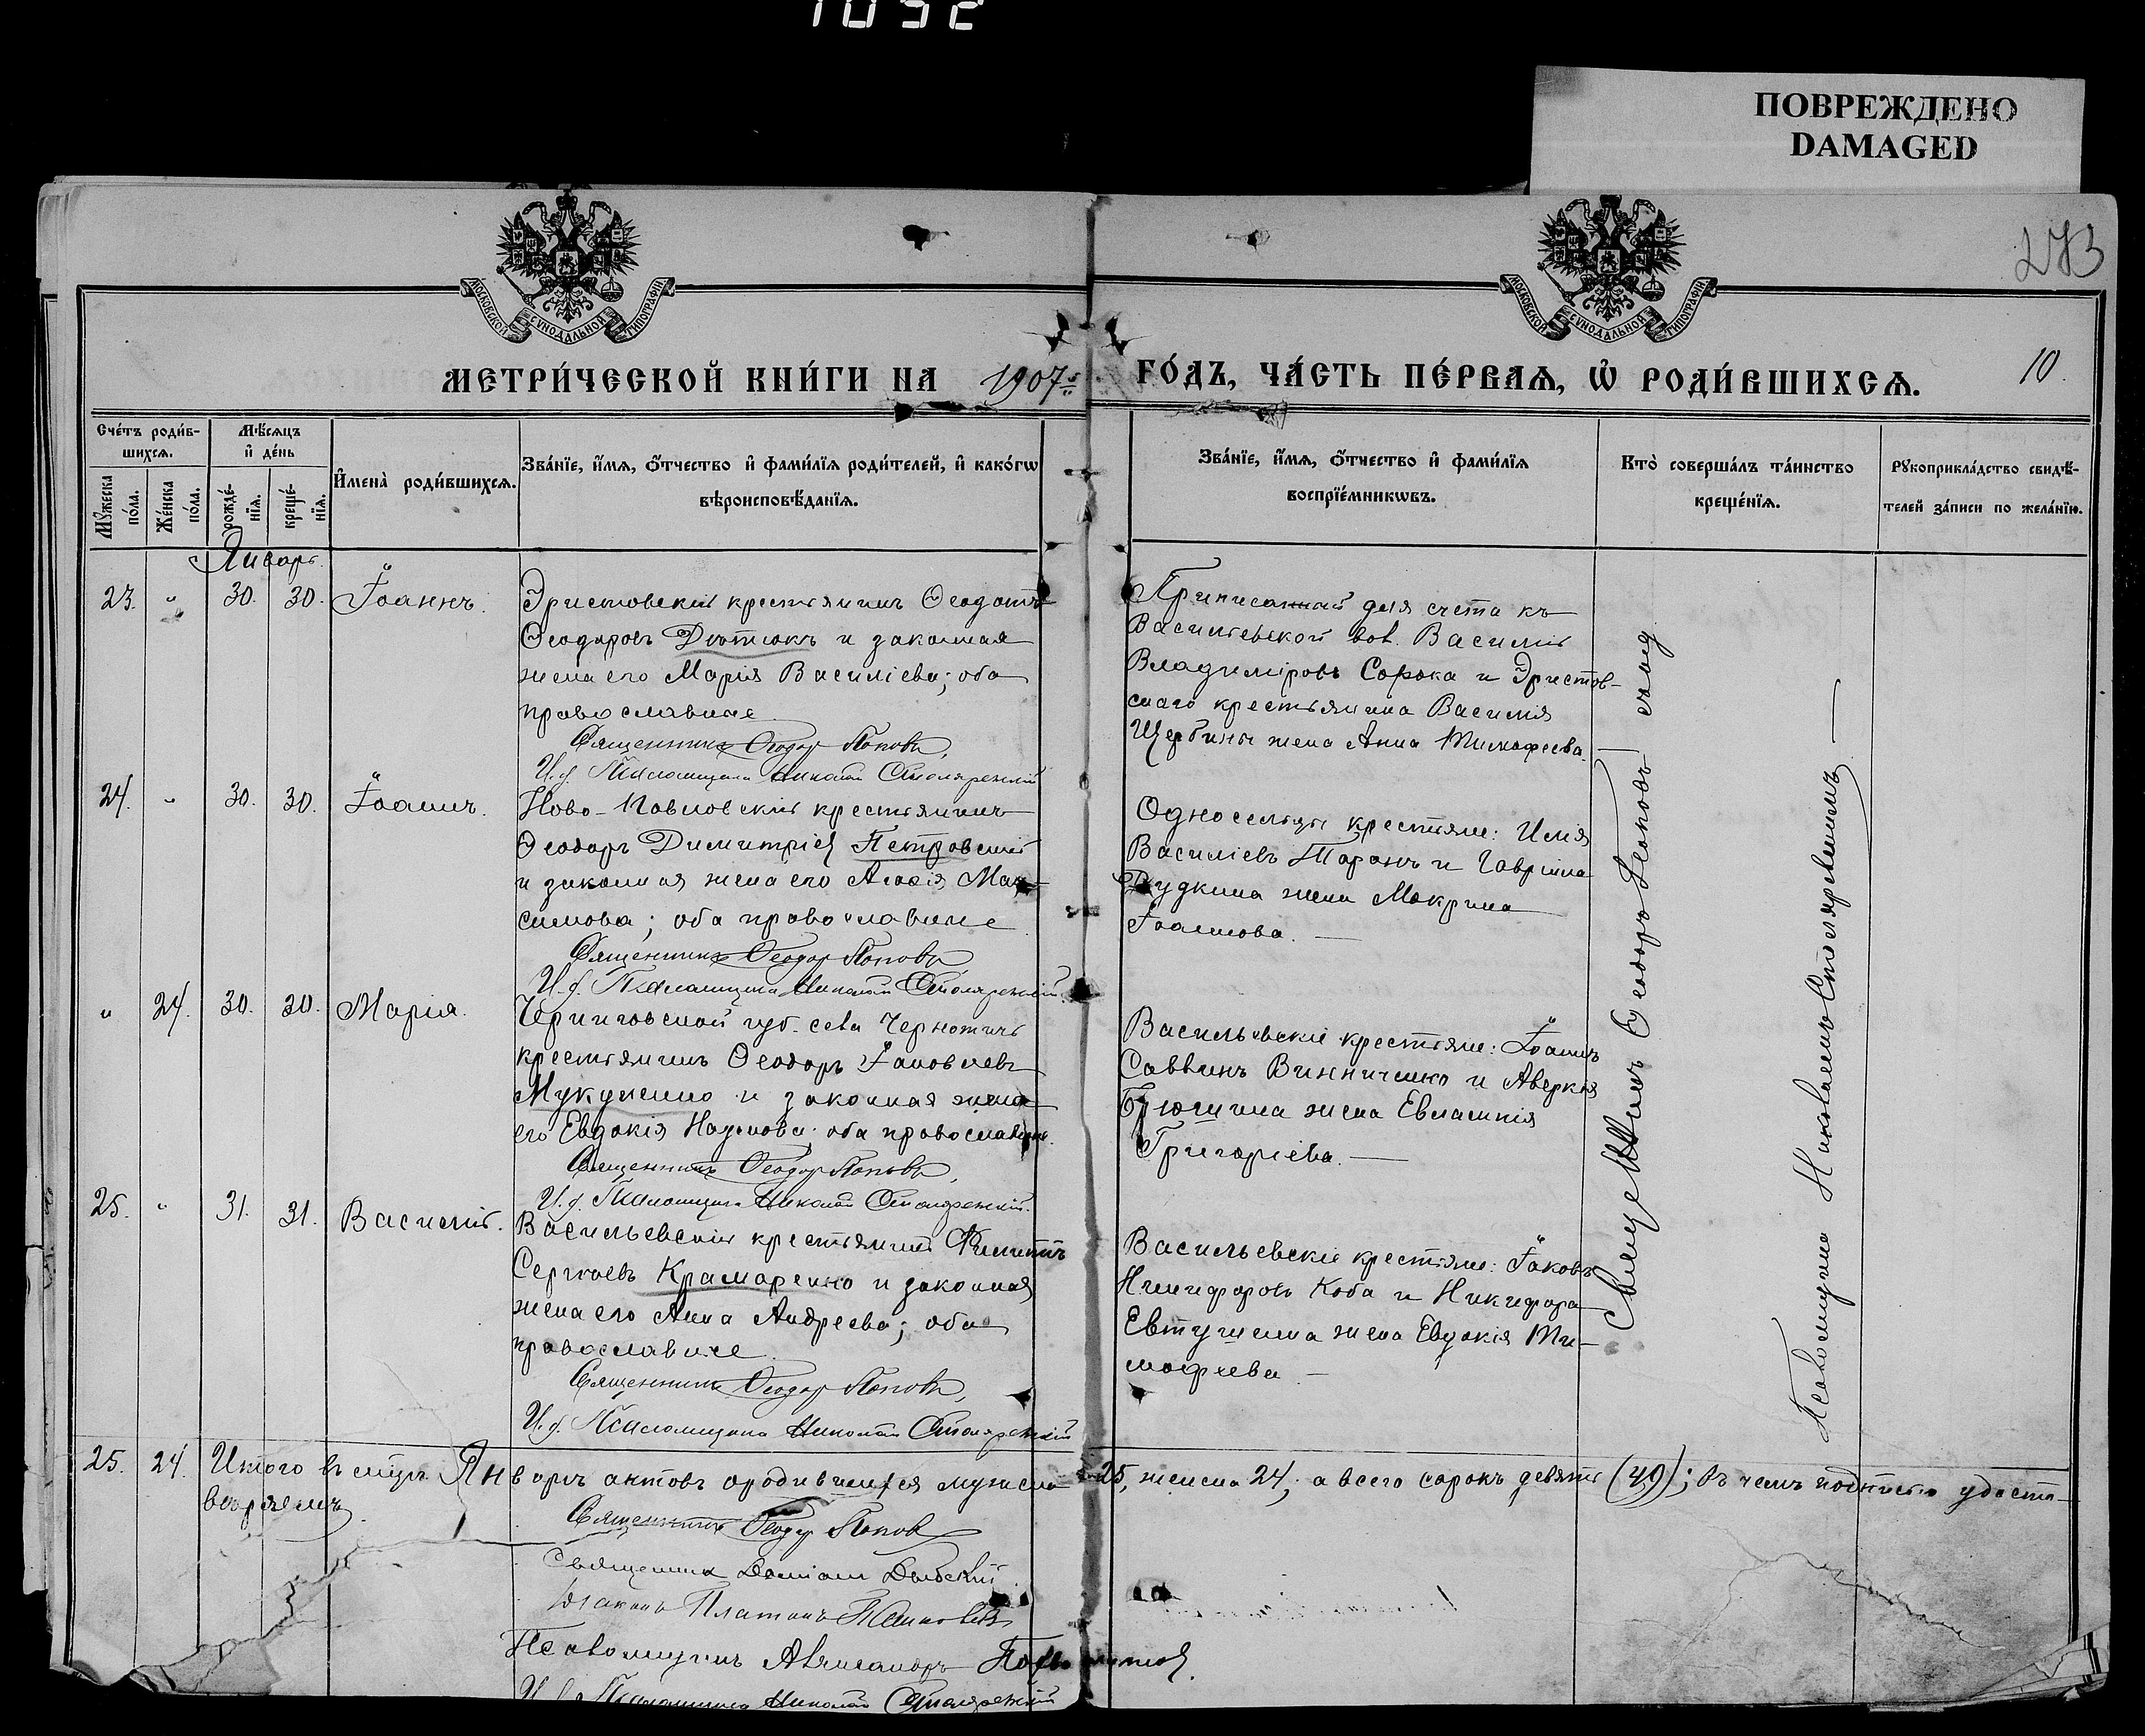 1092
ПОВРЕЖДЕНО
DAMAGED
273
МОСКОВСКОЙ СѴНОДАЛЬНОЙ ТИПОГРАФІИ
МОСКОВСКОЙ СѴНОДАЛЬНОЙ ТИПОГРАФІИ
МЕТРИ́ЧЕСКОЙ КНИ́ГИ НА 1907 ГО́ДЪ, ЧА́СТЬ ПЕ́РВАѦ, Ѽ РОДИ́ВШИХСѦ.
10.
Сче́тъ роди́в-
шихсѧ.
Мꙋ́жеска по́ла.
Же́нска по́ла.
Мѣ́сѧцъ
и҆ де́нь
рожде́-
нїѧ.
креще́-
нїѧ.
И҆мена̀ роди́вшихсѧ.
Зва́нїе, и҆́мѧ, ѻ҆́тчество и҆ фами́лїѧ роди́телей, и҆ како́гѡ
вѣроисповѣ́данїѧ.
Зва́нїе, и҆́мѧ, ѻ҆́тчество и҆ фами́лїѧ
воспрїе́мникѡвъ.
Кто̀ соверша́лъ та́инство
креще́нїѧ.
Рꙋкоприкла́дство свидѣ́-
телей за́писи по жела́нїю.
Январь.
23. " 30. 30. Іоаннъ.
Эристовскій крестьянинъ Ѳеодотъ
Ѳеодоровъ Дютюкъ и законная
жена его Марія Василіева; оба
православные
Священникъ Ѳеодоръ Поповъ,
И.д. Псаломщика Николай Столяревскій
Приписанный для счета къ
Васильевской вол. Василій
Владиміровъ Сорока и Эристов-
скаго крестьянина Василія
Щербины жена Анна Тимофеева.
24. " 30. 30. Іоаннъ.
Ново-Павловскій крестьянинъ
Ѳеодоръ Димитріев Петровскій
и законная жена его Агафія Мак-
симова; оба православные
Священникъ Ѳеодоръ Поповъ,
И.д. Псаломщика Николай Столяревскій.
Односельцы крестьяне: Илія
Василіевъ Таранъ и Гавріила
Дудкина жена Макрина
Іоаннова.
" 24. 30. 30. Марія.
Черниговской губ. села Чернотичъ
крестьянинъ Ѳеодоръ Іаковлевъ
и законная жена
его Евдокія Наумова; оба православные.
Священникъ Ѳеодоръ Поповъ,
И.д. Псаломщика Николай Столяревскій.
Васильевскіе крестьяне: Іоаннъ
Саввинъ Винниченко и Аверкія
жена Евлампія
Григоріева.
25. " 31. 31. Василій.
Васильевскій крестьянинъ Филиппъ
Сергѣевъ Крамаренко и законная
жена его Анна Андреева; оба
православные
Священникъ Ѳеодоръ Поповъ,
И.д. Псаломщика Николай Столяревскій
Васильевскіе крестьяне: Іаковъ
Никифоровъ Коба и Никифора
Евтушенка жена Евдокія Ти-
мофѣева
Священникъ Ѳеодоръ Поповъ
Псаломщикъ Николай Столяревскій
25. 24. Итого въ мцѣ Январѣ актовъ о родившихся мужска 25, женска 24; а всего сорокъ девять (49); въ чемъ подписью удосто-
вѣряемъ.
Священникъ Ѳеодоръ Поповъ
Священникъ Даміанъ
Діаконъ Платонъ
Псаломщикъ Александръ
И.д. Псаломщика Николай Столяревскій